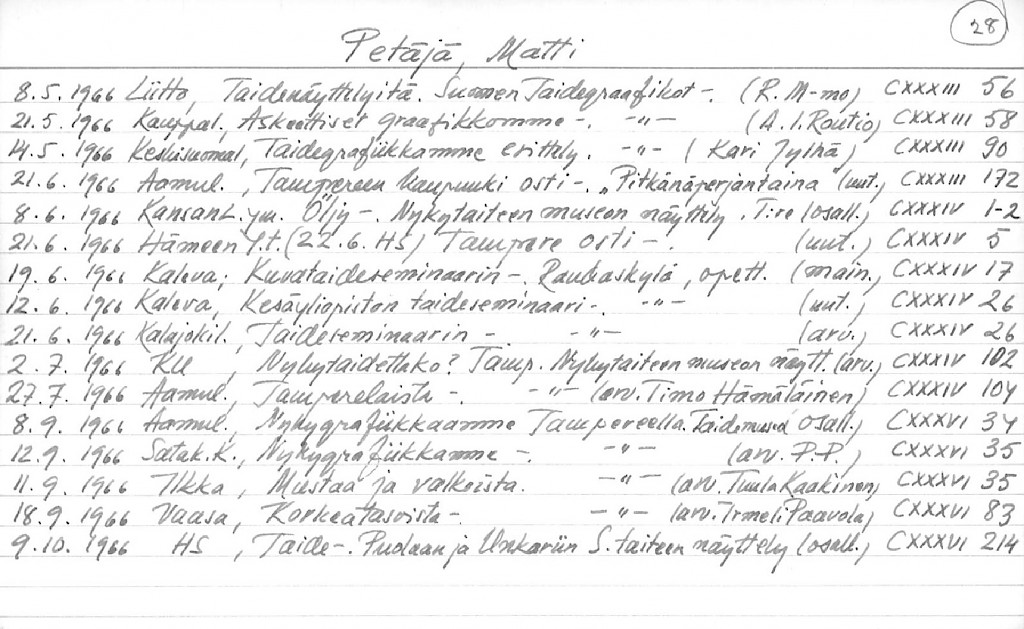 28
Petäjä, Matti
8.5.1966 Liitto, Taidenäyttelyitä. Suomen Taidegraafikot -. (R. M-mo) CXXXIII 56
21.5.1966 Kauppal., Askeettiset graafikkomme -. -"- (A.I. Routio) CXXXIII 58
14.5.1966 Keskisuomal., Taidegrafiikkamme esittely. -"- (Kari Jylhä) CXXXIII 90
21.6.1966 Aamul., Tampereen kaupunki osti -. "Pitkänäperjantaina" (uut.) CXXXIII 172
8.6.1966 KansanL. ym. Öljy -. Nykytaiteen museon näyttely. T:re (osall.) CXXXIV 1-2
21.6.1966 Hämeen Y.t. (22.6. HS) Tampere osti -. (uut.) CXXXIV 5
19.6.1966 Kaleva, Kuvataideseminaarin -. Raudaskylä, opett. (main.) CXXXIV 17
12.6.1966 Kaleva, Kesäyliopiston taideseminaari -. -"- (uut.) CXXXIV 26
21.6.1966 Kalajokil., Taideseminaarin - -"- (arv.) CXXXIV 26
2.7.1966 KU, Nykytaidettako? Tamp. Nykytaiteen museon näytt. (arv.) CXXXIV 102
27.7.1966 Aamul., Tamperelaista -. -"- (arv. Timo Hämäläinen) CXXXIV 104
8.9.1966 Aamul., Nykygrafiikkaamme Tampereella. Taidemuseo osall.) CXXXVI 34
12.9.1966 Satak.K., Nykygrafiikkamme -. -"- (arv. P.P.) CXXXVI 35
11.9.1966 Ilkka, Mustaa ja valkoista. -"- (arv. Tuula Kaakinen) CXXXVI 35
18.9.1966 Vaasa, Korkeatasoista -. -"- (arv. Irmeli Paavola) CXXXVI 83
9.10.1966 HS, Taide -. Puolaan ja Unkariin S. taiteen näyttely (osall.) CXXXVI 214